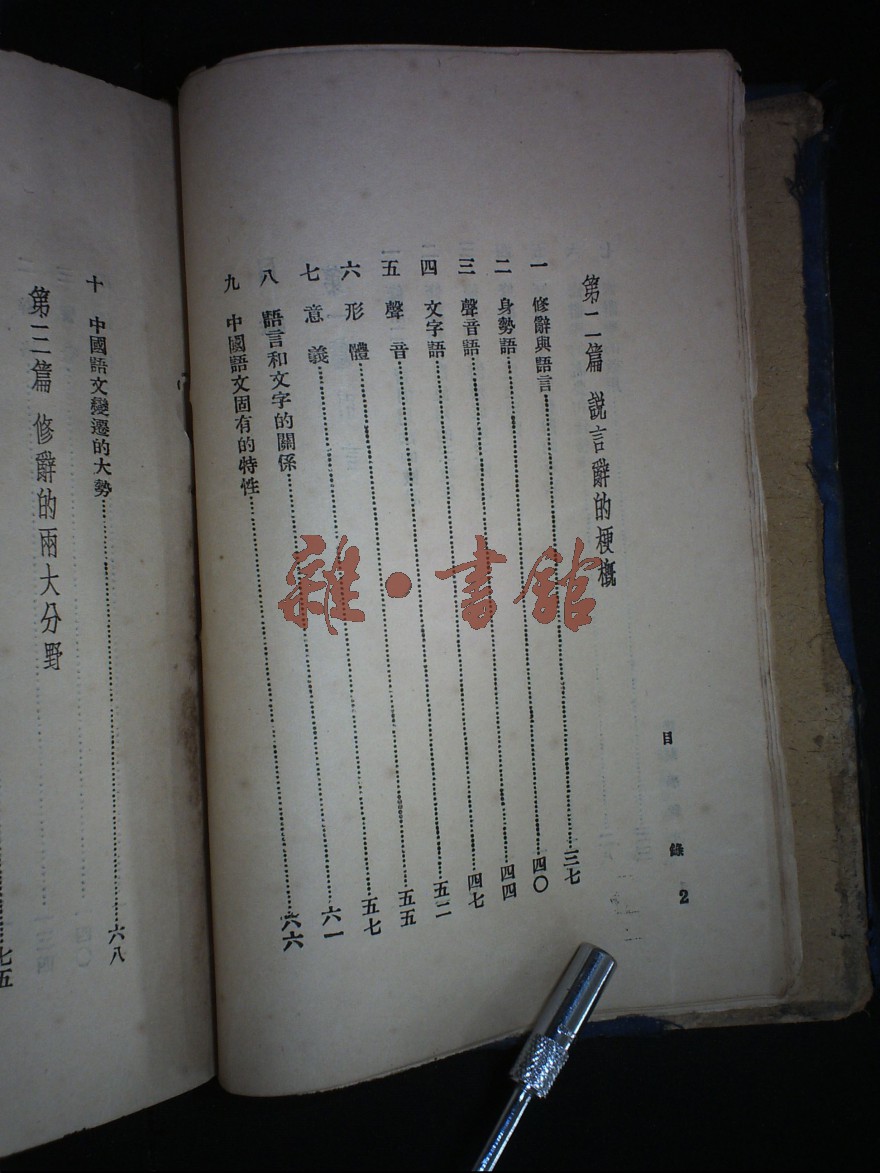 目錄 2
第二篇 説言辭的梗概
一 修辭與語言……三七
二 身勢語……四〇
三 聲音語……四四
四 文字語……四七
五 聲音……五二
六 形體……五五
七 意義……五七
八 語言和文字的關係……六一
九 中國語文固有的特性……六六
十 中國語文變遷的大勢……六八
第三篇 修辭的兩大分野
七五
雜·書館